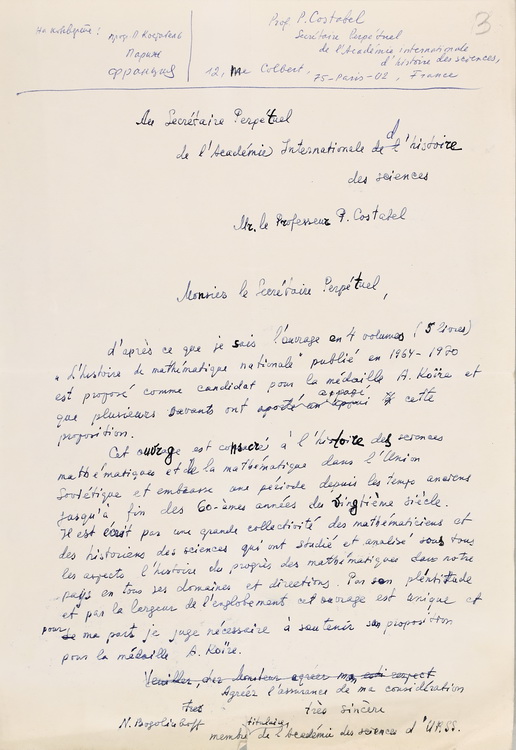 На конверте:
проф. П. Костабель
Париж
Франция
Prof. P. Costabel
Secrétaire Perpétuel
de l'Académie internationale
d'histoire des sciences,
12, rue Colbert, 75-Paris-02, France
3
Au Secrétaire Perpétuel
de l'Académie Internationale d'histoire
des sciences
Mr. le Professeur P. Costabel
Monsieur le Secrétaire Perpétuel,
d'après ce que je sais l'ouvrage en 4 volumes (5 livres)
"L'histoire de mathématique nationale" publié en 1964-1970
est proposé comme candidat pour la médaille A. Koïre et
que plusieurs savants ont appuyé cette
proposition.
Cet ouvrage est consacré à l'histoire des sciences
mathématiques et de la mathématique dans l'Union
Soviétique et embrasse une période depuis les temps anciens
jusqu'à fin des 60-èmes années du vingtième siècle.
Il est écrit par une grande collectivité des mathématiciens et
des historiens des sciences qui ont studié et analisé sous tous
les aspects l'histoire du progrès des mathématiques dans notre
pays en tous ses domaines et directions. Par son plénitude
et par la largeur de l'englobement cet ouvrage est unique et
pour ma part je juge nécessaire à soutenir sa proposition
pour la médaille A. Koïre.
Agréer l'assurance de ma considération
très sincère
N. Bogoliuboff
membre titulaire de l'Académie des sciences d'URSS.